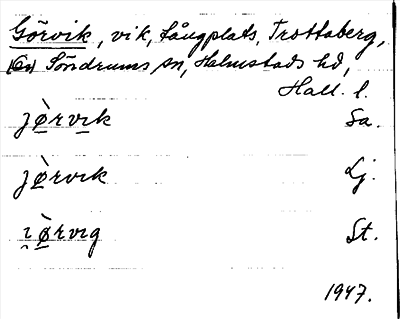 Görvik, vik, fångplats, Trottaberg,
(Gd) Söndrums sn, Halmstads hd,
Hall. l.
jø̀rvık Sa.
jø̀rvık Lj.
ı̯ø̀rvıg St.
1947.